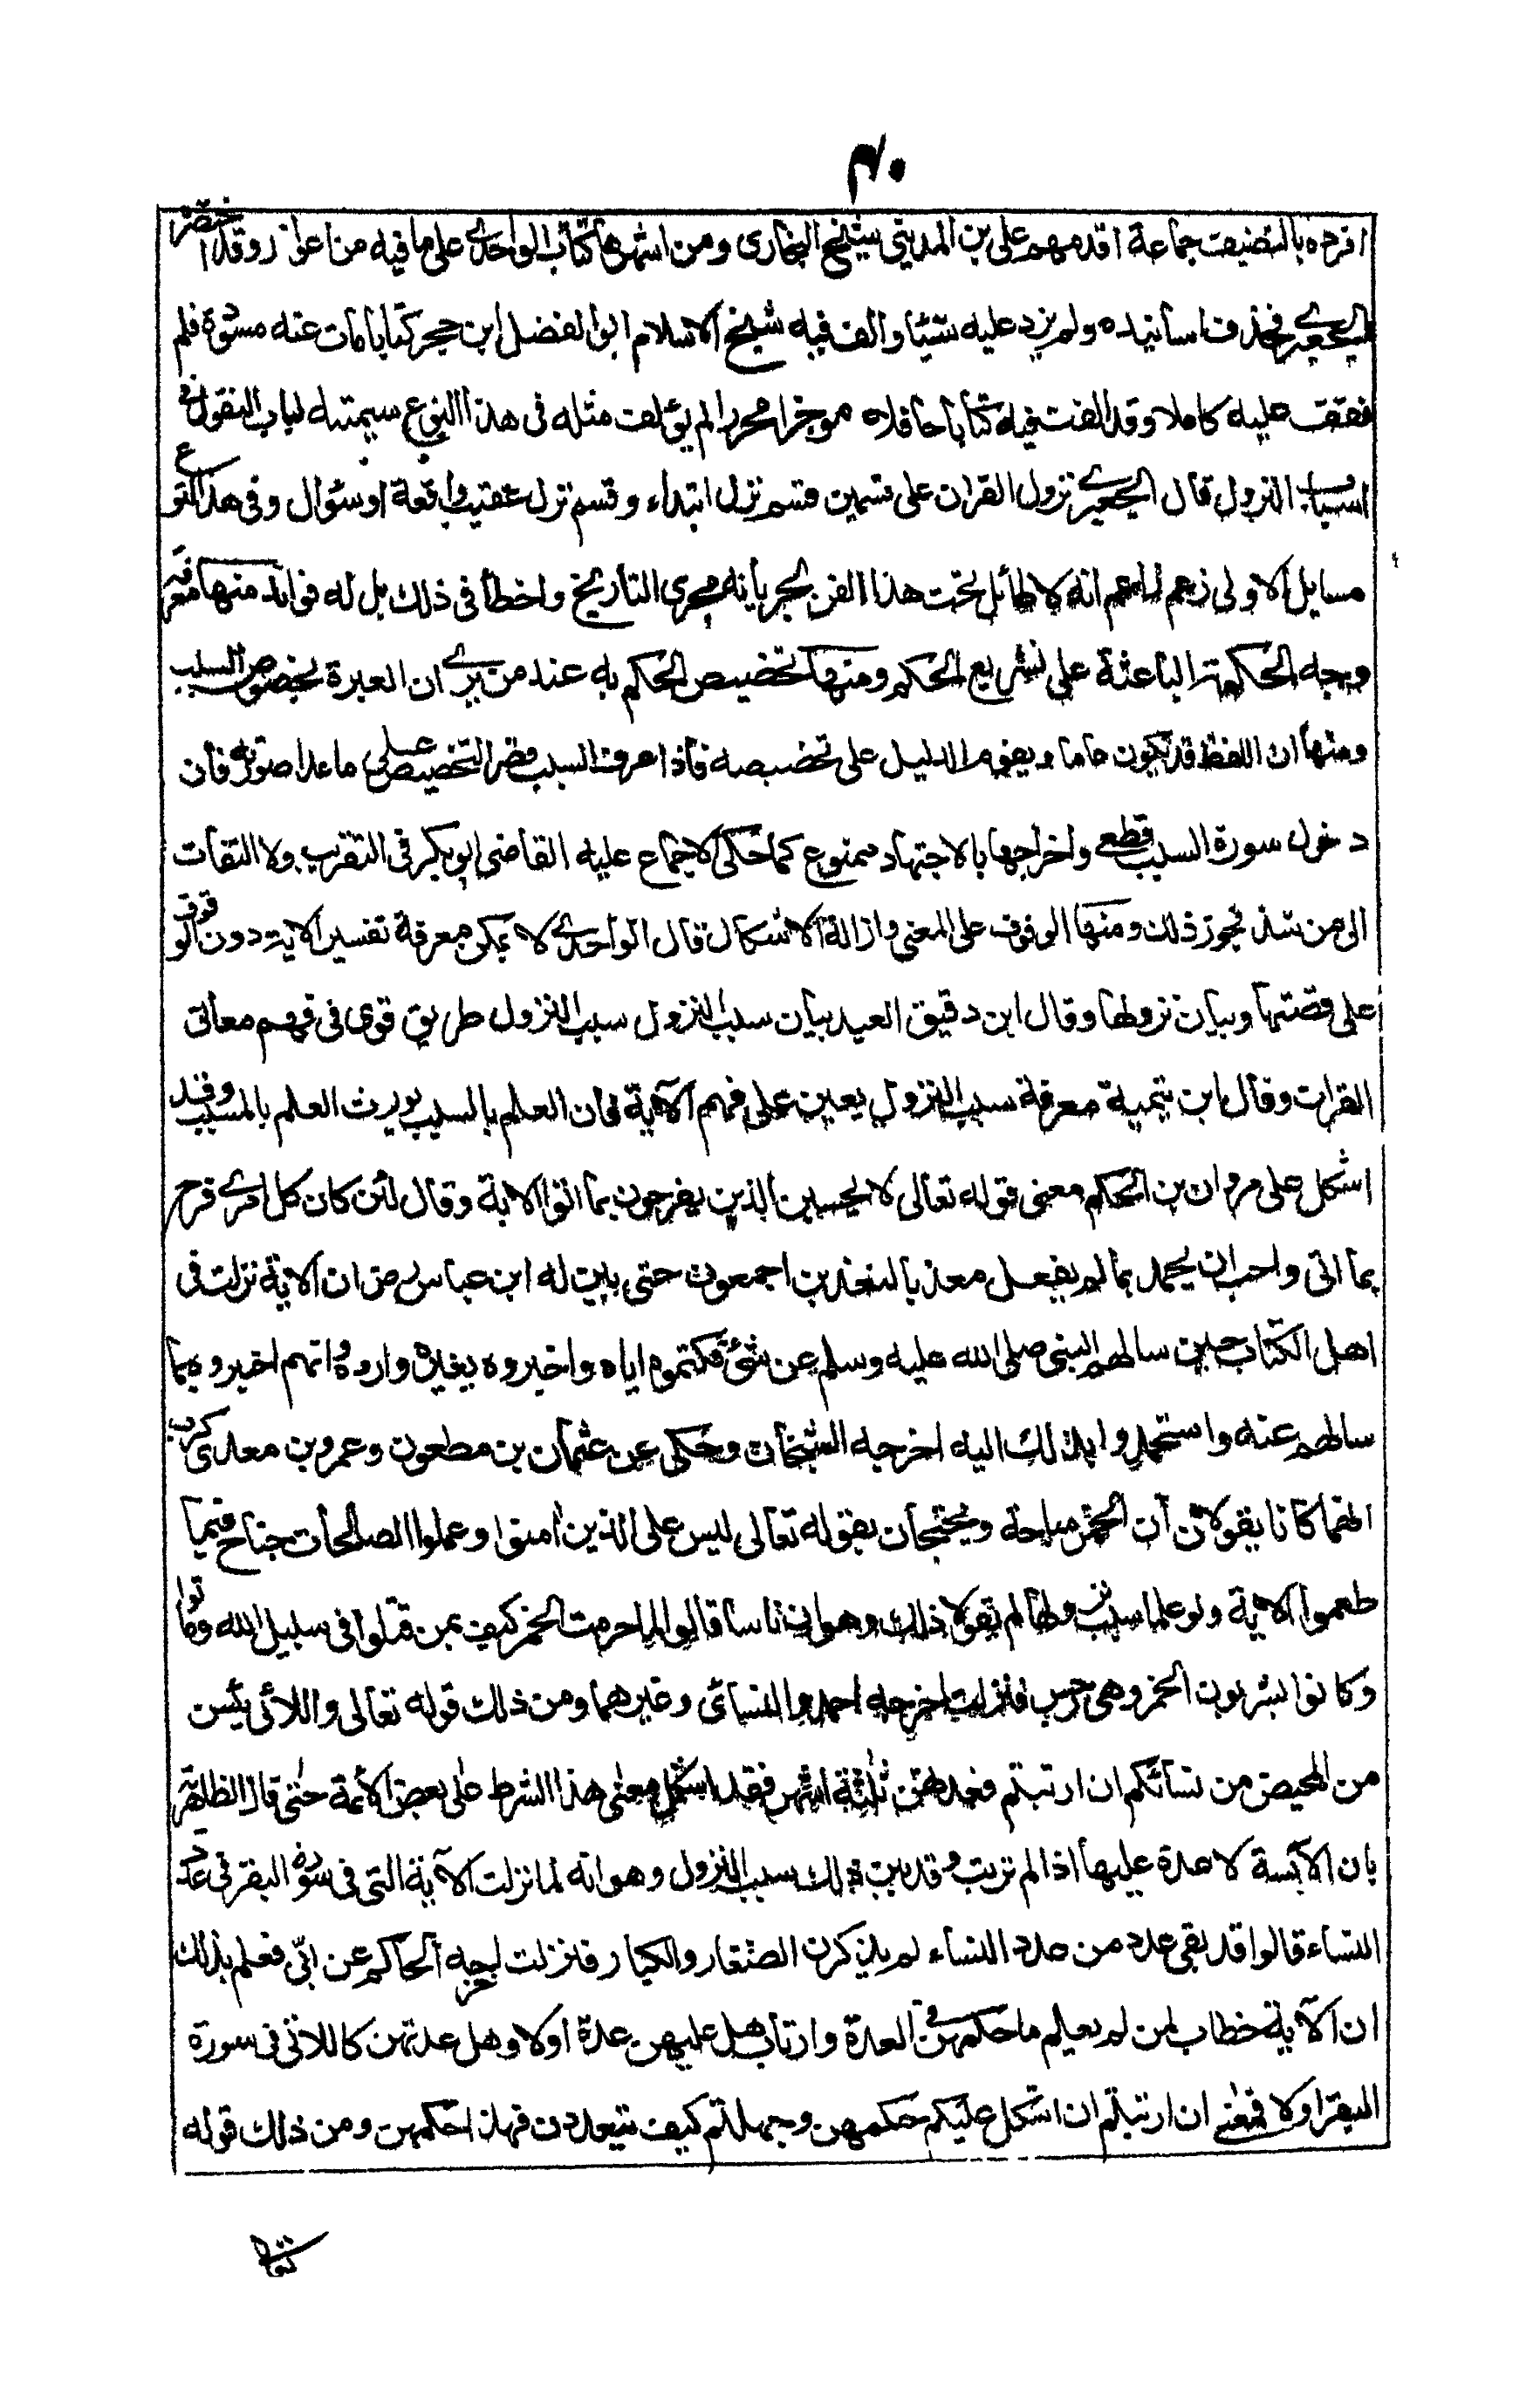 ٣٠
افرده بالتصنيف جماعة اقدمهم على بن المديني شيخ البخارى ومن اشهرها كتاب الواحدي على ما فيه من اعواز وقد اختصره
الجعبري فحذف اسانيده ولم يزد عليه شيئا والف فيه شيخ الاسلام ابو الفضل ابن حجر كتابا مات عنه مسودة فلم
نقف عليه كاملا وقد الفت فيه كتابا حافلا موجزا محررا لم يؤلف مثله فى هذا النوع سميته لباب النقول في
اسباب النزول قال الجعبري نزول القران على قسمين قسم نزل ابتداء وقسم نزل عقيب واقعة او سؤال وفى هذا النوع
مسايل الاولى زعم زاعم انه لا طائل تحت هذا الفن لجريانه مجرى التاريخ واخطأ فى ذلك بل له فوائد منها معرفة
وجه الحكمة الباعثة على تشريع الحكم ومنها تخصيص الحكم به عند من يرى ان العبرة بخصوص السبب
ومنها ان اللفظ قد يكون عاما ويقوم الدليل على تخصيصه فاذا عرف السبب قصر التخصيص على ما عدا صورته فان
دخول سورة السبب قطعي واخراجها بالاجتهاد ممنوع كما حكى الاجماع عليه القاضى ابو بكر فى التقريب ولا التفات
الى من شذ فجوز ذلك ومنها الوقوف على المعنى وازالة الاشكال قال الواحدي لا يمكن معرفة تفسير الاية دون الوقوف
على قصتها وبيان نزولها وقال ابن دقيق العيد بيان سبب النزول سبب النزول طريق قوى فى فهم معانى
القران وقال ابن تيمية معرفة سبب النزول يعين على فهم الآية فان العلم بالسبب يورث العلم بالمسبب وقد
اشكل على مروان بن الحكم معنى قوله تعالى لا يحسبن الذين يفرحون بما اتوا الاية وقال لئن كان كل امرئ فرح
بما اتى واحب ان يحمد بما لم يفعل معذبا لنعذبن اجمعون حتى بين له ابن عباس رض ان الاية نزلت فى
اهل الكتاب حين سالهم النبى صلى الله عليه وسلم عن شئ فكتموه اياه واخبروه بغيره واروه انهم اخبروه بما
سالهم عنه واستحمدوا بذلك اليه اخرجه الشيخان وحكى عن عثمان بن مطعون وعمرو بن معدى كرب
انهما كانا يقولان ان الخمر مباحة ويحتجان بقوله تعالى ليس على الذين امنوا وعملوا الصالحات جناح فيما
طعموا الاية ولو علما سبب نزولها لم يقولا ذلك وهو ان ناسا قالوا لما حرمت الخمر كيف بمن قتلوا فى سبيل الله وماتوا
وكانوا يشربون الخمر وهى رجس فنزلت اخرجه احمد والنسائى وغيرهما ومن ذلك قوله تعالى واللائى يئسن
من المحيض من نسائكم ان ارتبتم فعدتهن ثلثة اشهر فقد اشكل معنى هذا الشرط على بعض الأئمة حتى قال الظاهرية
بان الآئسة لا عدة عليها اذا لم ترتب وقد بين ذلك سبب النزول وهو انه لما نزلت الآية التى فى سورة البقر فى عدد
النساء قالوا قد بقى عدد من عدد النساء لم يذكرن الصغار والكبار فنزلت اخرجه الحاكم عن ابى فعلم بذلك
ان الآية خطاب لمن لم يعلم ما حكمهن فى العدة وارتاب هل عليهن عدة اولا وهل عدتهن كاللاتى فى سورة
البقر اولا فمعنى ان ارتبتم ان اشكل عليكم حكمهن وجهلتم كيف يتعددن فهذا حكمهن ومن ذلك قوله